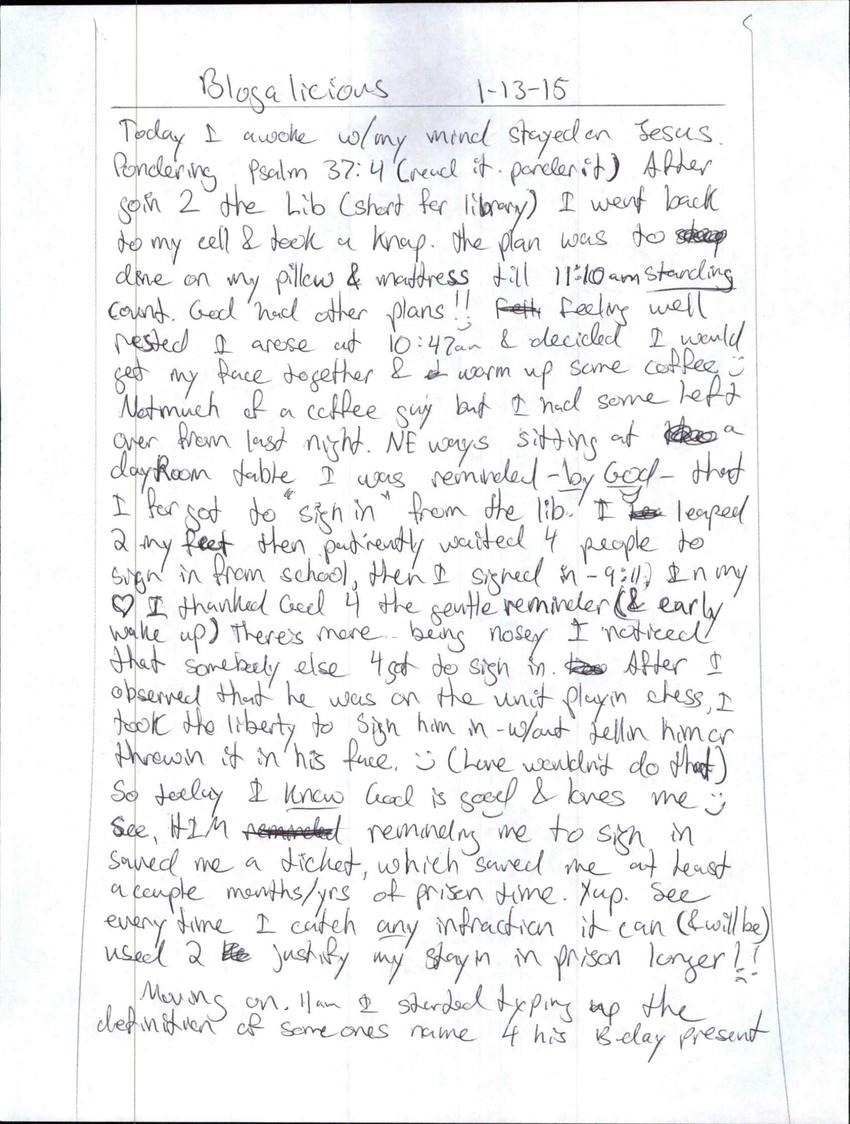 Blogalicious 1-13-15
Today I awoke w/my mind stayed on Jesus.
Pondering Psalm 37:4 (read it. ponder it) After
goin 2 the Lib (short for library) I went back
to my cell & took a knap. the plan was to
dine on my pillow & mattress till 11:10am standing
count. God had other plans!! feeling well
rested I arose at 10:47am & decided I would
get my face together & warm up some coffee :)
Not much of a coffee guy but I had some left
over from last night. NE ways sitting at a
dayRoom table I was reminded -by God- that
I forgot to "sign in" from the lib. I leaped
2 my feet then patiently waited 4 people to
sign in from school, then I signed in - 9:11. In my
♡ I thanked God 4 the gentle reminder (& early
wake up) There's more.. being nosey I noticed
that somebody else 4got to sign in. After I
observed that he was on the unit playin chess, I
took the liberty to sign him in -w/out tellin him or
throwin it in his face. :) (Love wouldn't do that)
So today I know God is good & loves me :)
See, HIM reminding me to sign in
saved me a ticket, which saved me at least
a couple months/yrs of prison time. Yup. See
every time I catch any infraction it can (& will be)
used 2 justify my stayin in prison longer!!
Moving on. 11am I started typing up the
definition of someones name 4 his B-day present